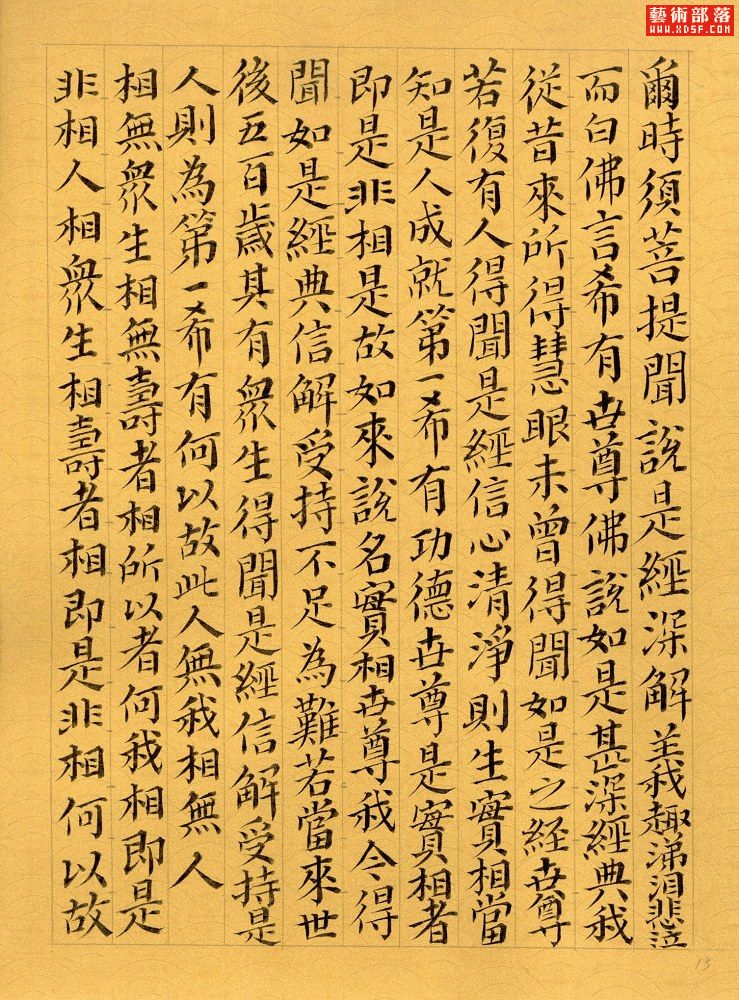 藝術部落
www.XDSF.com
爾時須菩提聞說是經深解義趣涕淚悲泣
而白佛言希有世尊佛說如是甚深經典我
從昔來所得慧眼未曾得聞如是之經世尊
若復有人得聞是經信心清淨則生實相當
知是人成就第一希有功德世尊是實相者
即是非相是故如來說名實相世尊我今得
聞如是經典信解受持不足為難若當來世
後五百歲其有眾生得聞是經信解受持是
人則為第一希有何以故此人無我相無人
相無眾生相無壽者相所以者何我相即是
非相人相眾生相壽者相即是非相何以故
13